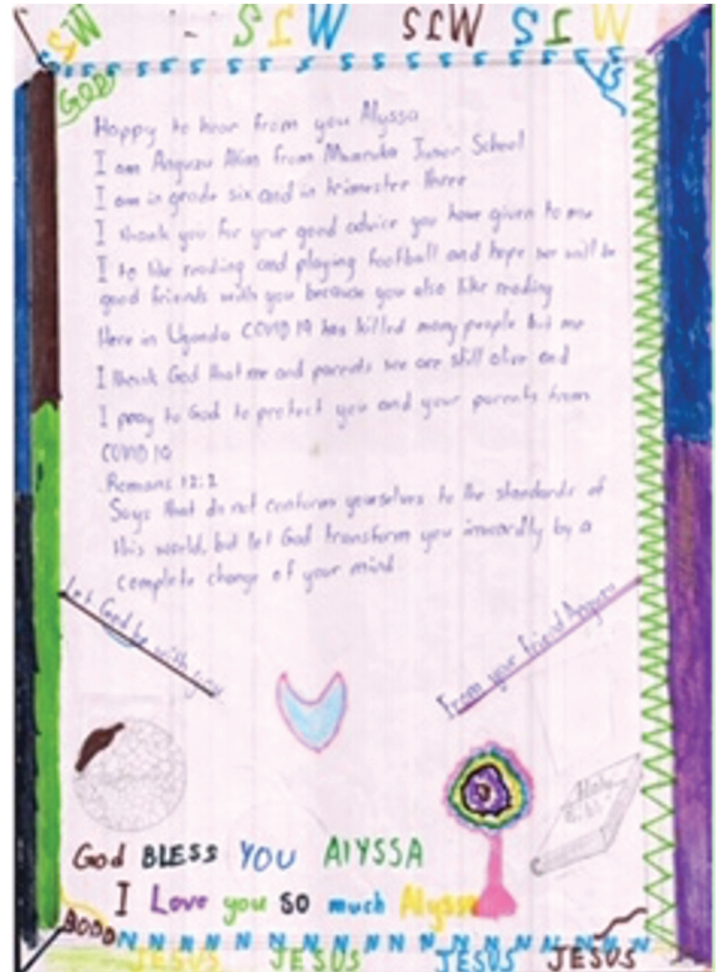 MJS MJS MJS MJS
GOD IS
Happy to hear from you Alyssa
I am Anguzu Allan from Junior School
I am in grade six and in trimester three
I thank you for your good advice you have given to me
I to like reading and playing football and hope we will be
good friends with you because you also like reading
Here in Uganda COVID 19 has killed many people but me
I thank God that me and parents we are still alive and
I pray to God to protect you and your parents from
COVID 19
Romans 12:2
Says that do not conform yourselves to the standards of
this world, but let God transform you inwardly by a
complete change of your mind
Let God be with you
From your friend Anguzu
Holy Bible
God BLESS YOU AlYSSA
I Love you so much Alyssa
JESUS JESUS JESUS JESUS